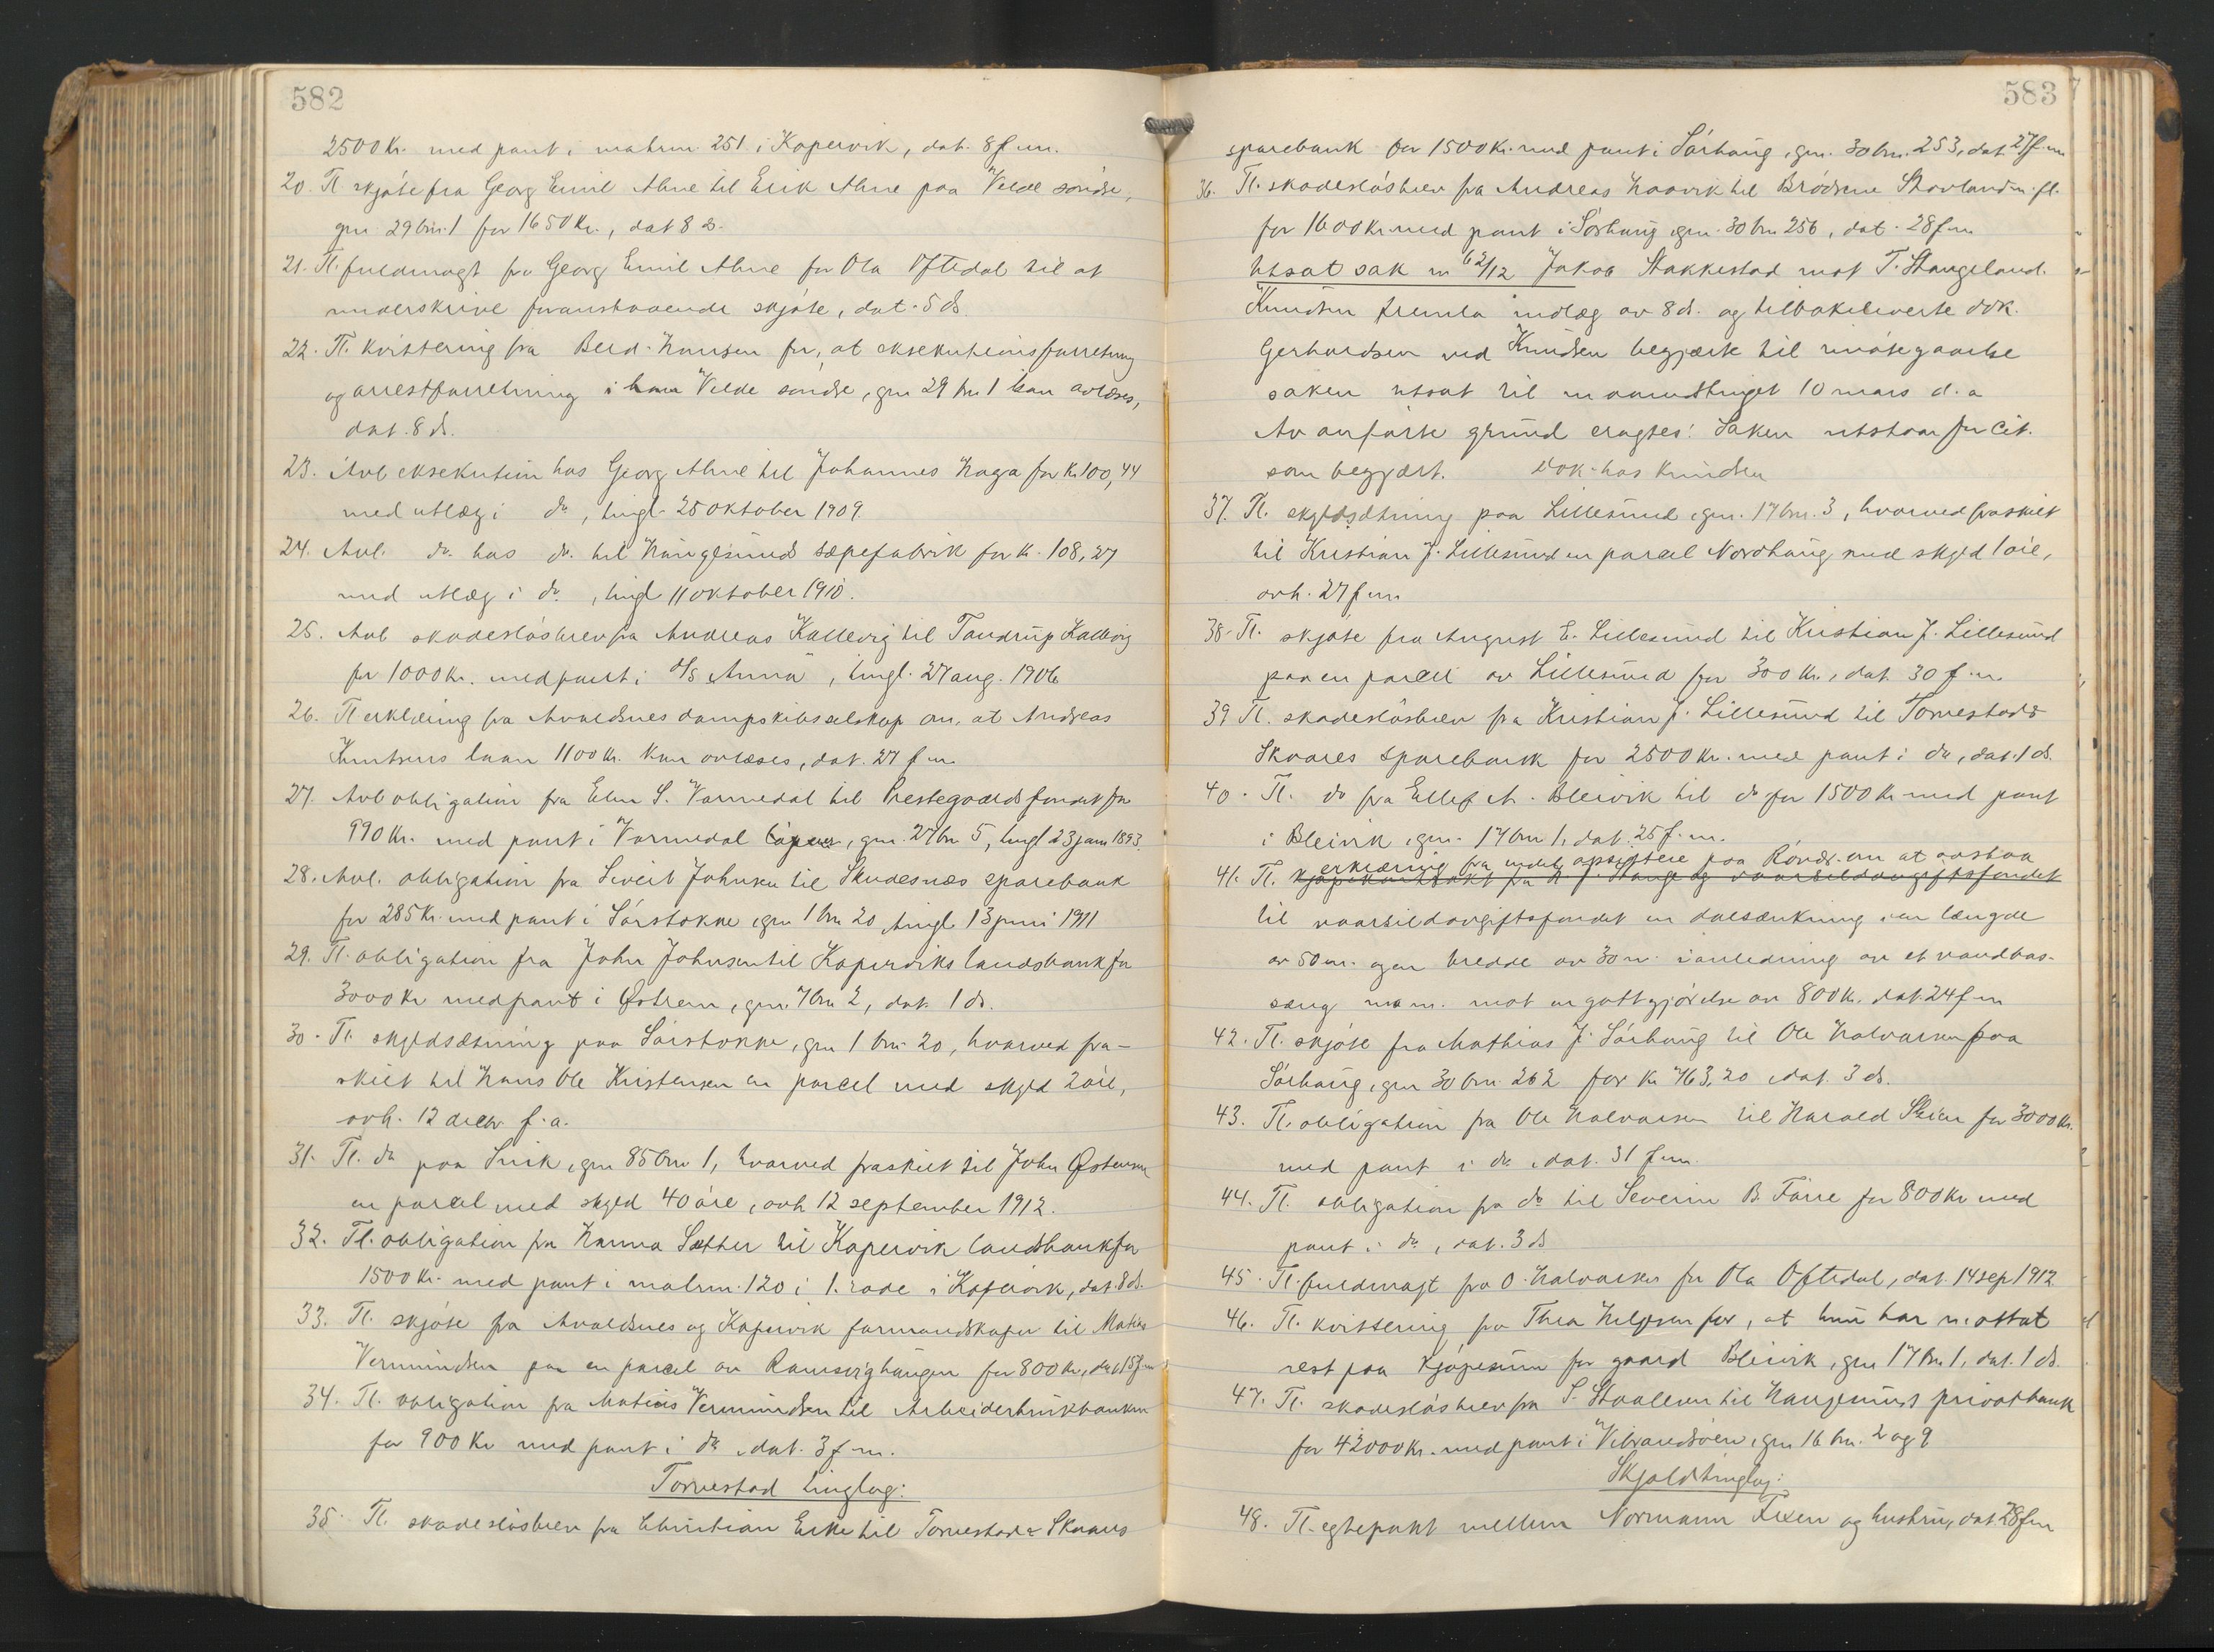 582
2500 Kr. med pant i matrnr. 251 i Kopervik, dat. 8 f.m.
20. Tl. skjøte fra Georg Emil Ahne til Erik Ahne paa Velde søndre,
gnr 29 bnr. 1 for 1650 Kr., dat 8 ds.
21. Tl. fuldmagt fra Georg Emil Ahne for Ola Oftedal til at
underskrive foranstaaende skjøte, dat. 5 ds.
22. Tl. kvittering fra Berd. Hansen for, at eksekutionsforretning
og arrestforretning i Velde søndre, gnr 29 bnr 1 kan avlæses,
dat. 8 ds.
23. Avl. eksekution hos Georg Ahne til Johannes Haga for Kr. 100,44
med utlæg i do, tingl. 25 oktober 1909.
24. Avl. do. hos do. til Haugesunds sæpefabrik for kr. 108,27
med utlæg i do, tingl 11 oktober 1910.
25. Avl. skadesløsbrev fra Andreas Kallevig til Tandrup Kallevig
for 1000 Kr. med pant i D/S "Anna", tingl. 27 aug. 1906
26. Tl erklæring fra Avaldsnes dampskibsselskap om, at Andreas
Knutsens laan 1100 Kr. kan avlæses, dat. 27 f.m.
27. Avl obligation fra Elen S. Vormedal til Prestegaardsfondet for
990 Kr. med pant i Vormedal, gnr. 27 bnr 5, tingl 23 jan 1893.
28. Avl. obligation fra Sivert Johnsen til Skudesnæs sparebank
for 285 Kr. med pant i Sørstokke, gnr 1 bnr 20, tingl 13 juni 1911
29. Tl. obligation fra John Johnsen til Koperviks landsbank for
3000 Kr med pant i Østrem, gnr. 7 bnr 2, dat. 1 ds.
30. Tl. skyldsætning paa Sørstokke, gnr 1 bnr. 20, hvorved fra-
skilt til Hans Ole Kristensen en parcel med skyld 2 øre,
avh. 12 decbr. f.a.
31. Tl. do paa Snik, gnr 85 bnr 1, hvorved fraskilt til John Østensen
en parcel med skyld 40 øre, avh 12 september 1912.
32. Tl. obligation fra Hanna Sætter til Kopervik landsbank for
1500 Kr. med pant i matrnr. 120 i 1. rode i Kopervik, dat. 8 ds.
33. Tl. skjøte fra Avaldsnes og Kopervik formandskaper til Matias
Vermundsen paa en parcel av Ramsvighaugen for 800 Kr., dat. 15 f.m
34. Tl. obligation fra Matias Vermundsen til Arbeiderbrukbanken
for 900 Kr med pant i do, dat. 3 f.m.
Torvestad tinglag:
35. Tl. skadesløsbrev fra Christian Eike til Torvestad & Skaares
583
sparebank for 1500 Kr. med pant i Sørhaug, gnr. 30 bnr. 253, dat 27 f.m
36. Tl. skadesløsbrev fra Andreas Haavik til Brødrene Stovland m. fl.
for 1600 Kr. med pant i Sørhaug, gnr. 30 bnr 256, dat. 28 f.m
Utsat sak nr 62/12 Jakob Stakkestad mot T. Stangeland.
Knudsen fremla indlæg av 8 ds. og tilbakeleverte dok.
Gerhardsen ved Knudsen begjærte til imøtegaaelse
saken utsat til maanedstinget 10 mars d. a
Av anførte grund eragtes: Saken utstaar for cit.
som begjært. Dok. hos Knudsen
37. Tl. skyldsætning paa Lillesund, gnr. 17 bnr. 3, hvorved fraskilt
til Kristian J. Lillesund en parcel Nordhaug med skyld 1 øre,
avh. 27 f.m.
38. Tl. skjøte fra August E. Lillesund til Kristian J. Lillesund
paa en parcel av Lillesund for 300 Kr., dat. 30 f.m.
39 Tl. skadesløsbrev fra Kristian J. Lillesund til Torvestad &
Skaares sparebank for 2500 Kr. med pant i do, dat. 1 ds.
40. Tl. do fra Ellef A. Bleivik til do for 1500 Kr med pant
i Bleivik, gnr. 17 bnr 1, dat. 25 f.m.
erklæring fra endel opsittere paa Røvær om at avstaa
41. Tl. kjøpekontrakt fra H. J. Stange og vaarsildavgiftsfondet
til vaarsildavgiftsfondet en dalsænkning i en længde
av 50 m. og en bredde av 30 m. i anledning av et vandbas-
sæng m.m. mot en gottgjørelse av 800 Kr. dat. 24 f.m
42. Tl. skjøte fra Mathias J. Sørhaug til Ole Halvorsen paa
Sørhaug, gnr 30 bnr. 262 for kr 763,20, dat. 3 ds.
43. Tl. obligation fra Ole Halvorsen til Harald Skien for 3000 Kr.
med pant i do, dat. 31 f.m.
44. Tl. obligation fra do til Severin B. Førre for 800 Kr med
pant i do, dat. 3 ds
45. Tl. fuldmagt fra O. Halvorsen for Ola Oftedal, dat. 14 sep 1912
46. Tl. kvittering fra Thea Helgesen for, at hun har mottat
rest paa kjøpesum for gaard Bleivik, gnr 17 bnr 1, dat. 1 ds.
47. Tl. skadesløsbrev fra S. Staalesen til Haugesunds privatbank
for 42000 Kr. med pant i Vibrandsøen, gnr 16 bnr. 2 og 9
Skjold tinglag:
48. Tl. egtepakt mellem Normann Fixen og hustru, dat. 28 f.m